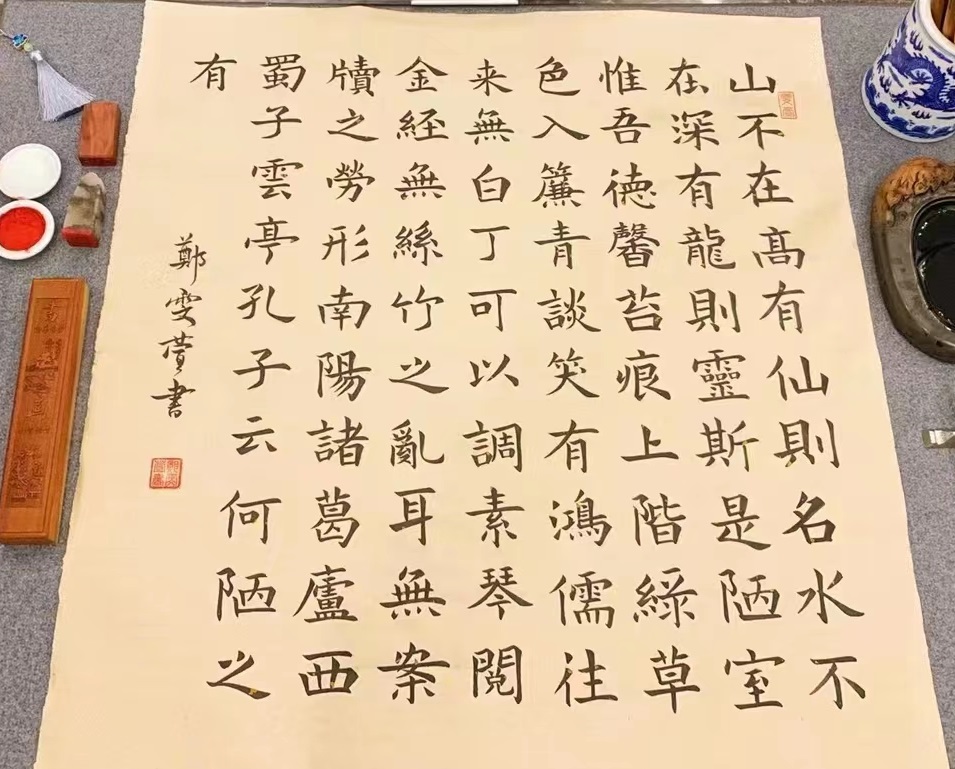 山不在髙有仙則名水不
在深有龍則靈斯是陋室
惟吾徳馨苔痕上階綠草
色入簾青談笑有鴻儒往
来無白丁可以調素琴閱
金經無絲竹之亂耳無案
牘之勞形南陽諸葛廬西
蜀子雲亭孔子云何陋之
有
鄭雯書